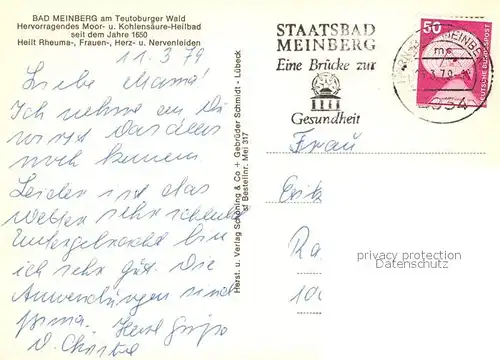 BAD MEINBERG am Teutoburger Wald
Hervorragendes Moor- u. Kohlensäure-Heilbad
seit dem Jahre 1650
Heilt Rheuma-, Frauen-, Herz- u. Nervenleiden
11.3.79
Liebe Mama!
Ich nehme an Du
wirst das alles
noch kennen
Leider ist das
Wetter sehr schlecht
Untergebracht bin
ich sehr gut. Die
Anwendungen sind
prima.
Herst. u. Verlag Schöning & Co + Gebrüder Schmidt - Lübeck
Bestellnr. Mei 317
STAATSBAD
MEINBERG
Eine Brücke zur
Gesundheit
50
DEUTSCHE BUNDESPOST
Frau
privacy protection
Datenschutz